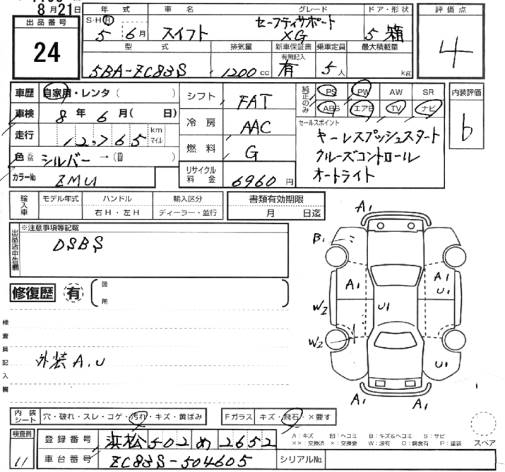 8月21日
出品番号
24
年式 車名 グレード ドア・形状
S・H・R 5年 6月 スイフト セーフティサポート XG 5 箱
型式 排気量 新車保証書 乗車定員 最大積載量
5BA-ZC83S 1200cc 有無記入 有 5人 kg
評価点
4
車歴 自家用・レンタ( )
車検 8年 6月( 日)
走行 12,765 km マイル
色 シルバー→( )
カラーNo. ZMU
シフト FAT
冷房 AAC
燃料 G
リサイクル料金 6960円
純正のみ PS PW AW SR
ABS エアB TV ナビ
セールスポイント
キーレスプッシュスタート
クルーズコントロール
オートライト
内装評価
b
輸入車 モデル年式 ハンドル 右H・左H 輸入区分 ディーラー・並行
書類有効期限
月 日迄
※注意事項等記載
DSBS
修復歴 有 箇所
検査員記入欄
外装A.U
A1
B1
A1
A1
U1
U1
W2
W2
A1
内装シート 穴・破れ・スレ・コゲ・汚れ・キズ・黄ばみ
Fガラス キズ・飛石・×要す
A:キズ U:凹ミ B:キズ&凹ミ S:サビ
スペア
検査員 11
登録番号 浜松502め2652
車台番号 ZC83S-504605
シリアルNo.